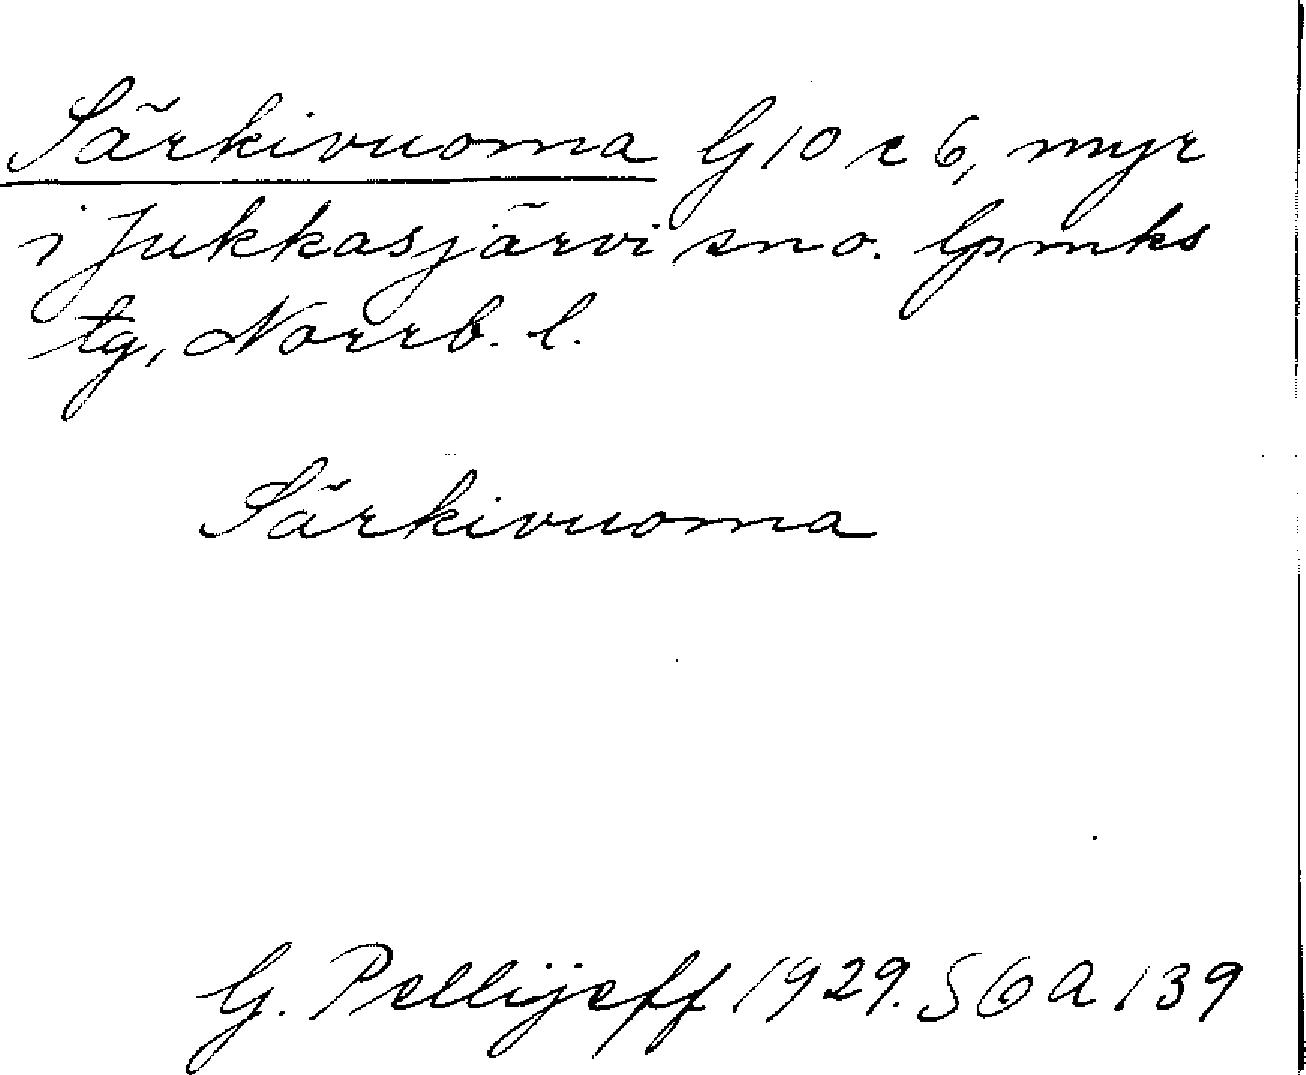 Särkivuoma G 10 c 6, myr
i Jukkasjärvi sn o. lpmks
tg, Norrb. l.
Särkivuoma
G. Pellijeff 1929. SGA 139